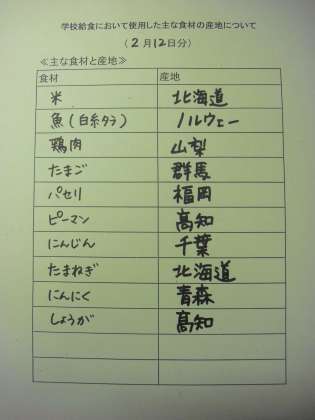 学校給食において使用した主な食材の産地について
（2月12日分）
≪主な食材と産地≫
食材 産地
米 北海道
魚(白糸タラ) ノルウェー
鶏肉 山梨
たまご 群馬
パセリ 福岡
ピーマン 高知
にんじん 千葉
たまねぎ 北海道
にんにく 青森
しょうが 高知